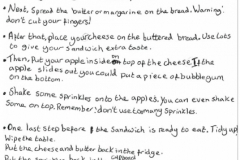 • Next, Spread the butter or margarine on the bread. Warning!
don't cut your fingers!
• After that, place your cheese on the buttered bread. Use lots
to give your sandwich extra taste.
• Then, Put your apple inside on top of the cheese. If the
apple slides out you could put a piece of bubblegum
on the bottom.
• Shake some sprinkles onto the apples. You can even shake
Some on top. Remember! don't use too many Sprinkles.
• One last step before the Sandwich is ready to eat. Tidy up!
Wipe the table.
Put the cheese and butter back in the fridge.
cupboard